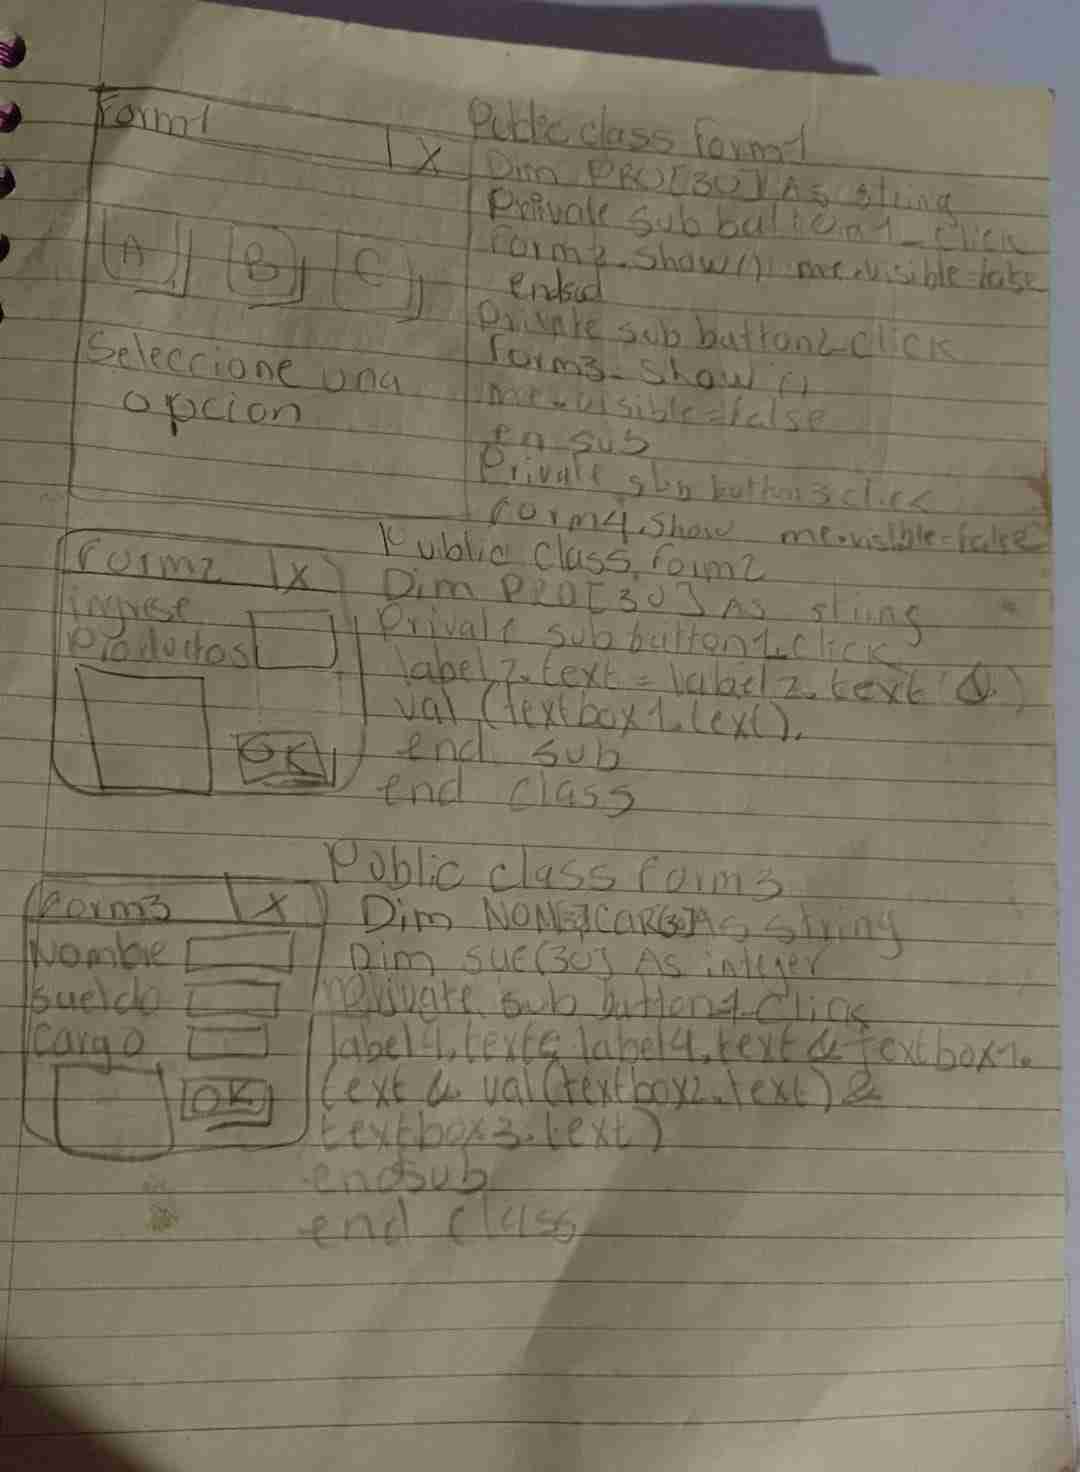 Form1
X
A B C
Seleccione una
opcion
Public class Form1
Dim PRO[30] As string
Private sub button1_click
Form2.show() me.visible=false
endsub
Private sub button2_click
Form3.show()
me.visible=false
en sub
Private sub button3click
Form4.show me.visible=false
Form2 X
ingrese
productos
OK
Public class Form2
Dim PRO[30] As string
Private sub button1_click
label2.text = label2.text (&)
val (textbox1.text).
end sub
end class
Form3 X
Nombre
Sueldo
Cargo
OK
Public class Form3
Dim CAR[30]As string
Dim SUE[30] As integer
Private sub button1_click
label4.text= label4.text & textbox1.
text & val(textbox2.text) &
textbox3.text)
endsub
end class